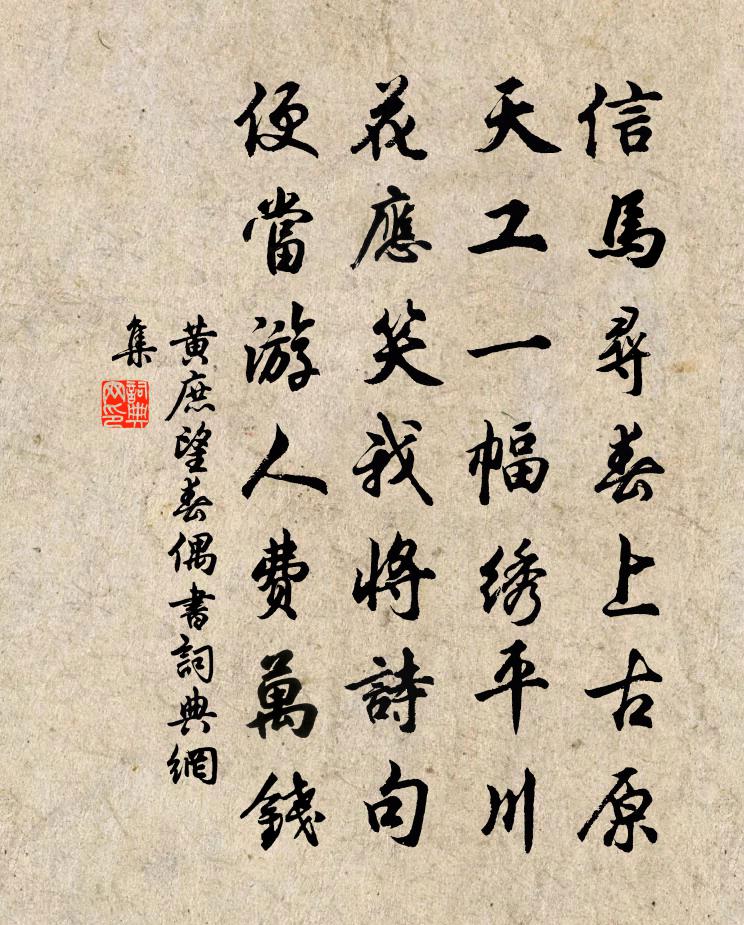 信馬尋春上古原
天工一幅綉平川
花應笑我將詩句
便當游人費萬錢
黃庶望春偶書詞典網
集
詞典
网印